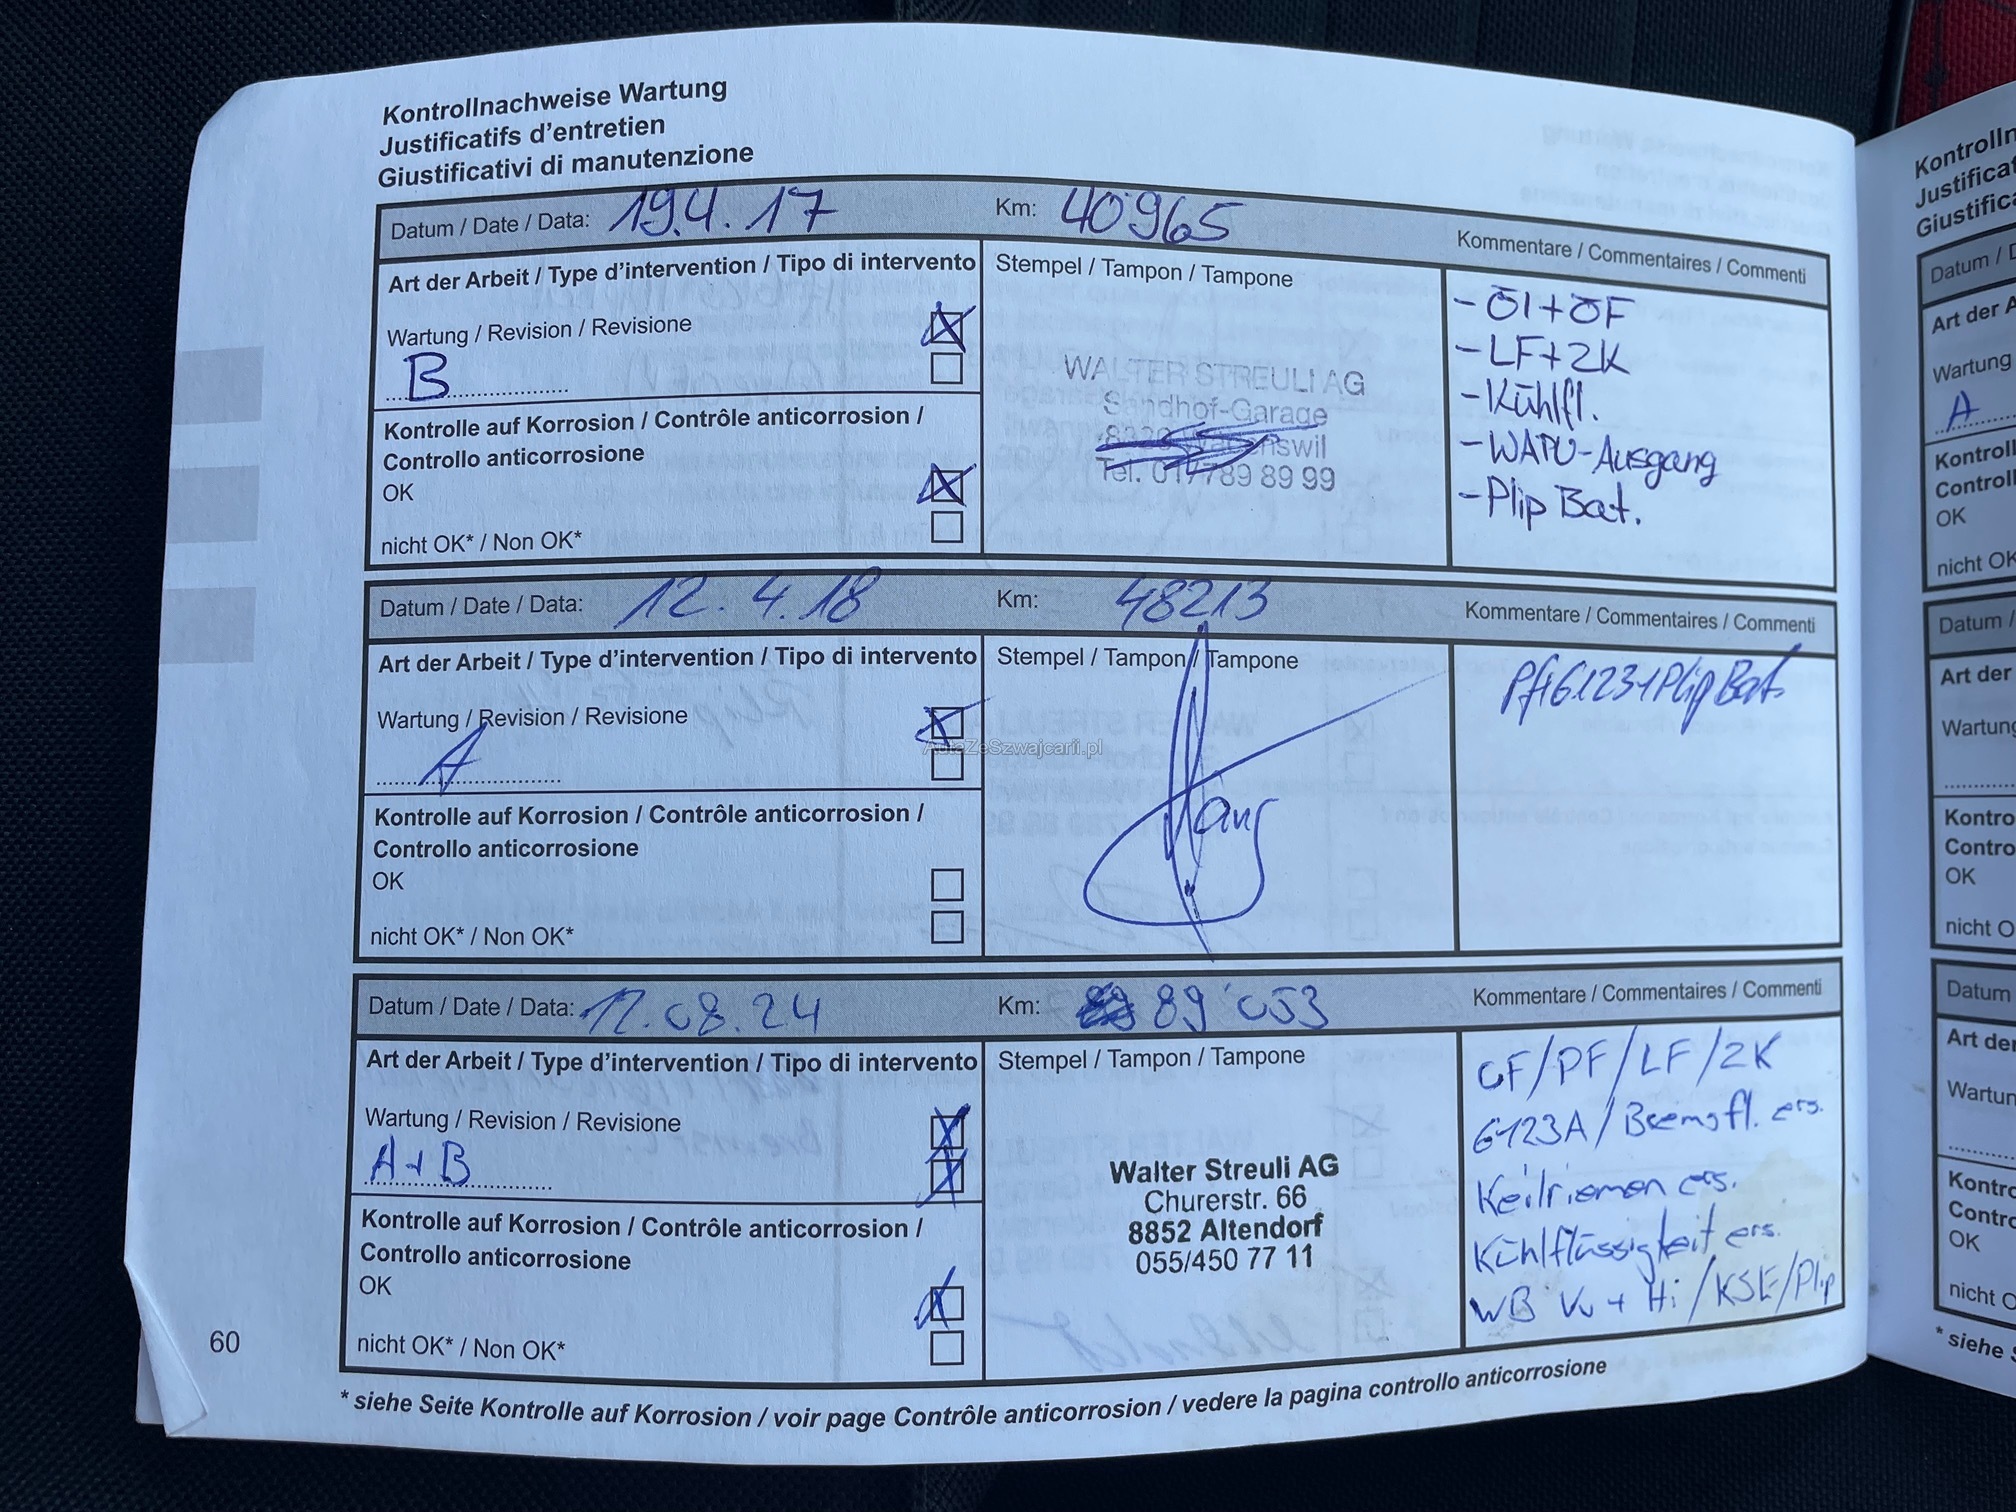 Kontrollnachweise Wartung
Justificatifs d'entretien
Giustificativi di manutenzione
Datum / Date / Data: 19.4.17 Km: 40'965 Kommentare / Commentaires / Commenti
Art der Arbeit / Type d'intervention / Tipo di intervento
Wartung / Revision / Revisione
B
Kontrolle auf Korrosion / Contrôle anticorrosion /
Controllo anticorrosione
OK
nicht OK* / Non OK*
Stempel / Tampon / Tampone
WALTER STREULI AG
Sandhof-Garage
Tel. 01/789 89 99
- ÖL+ÖF
- LF+ZK
- Kühlfl.
- WAPU-Ausgang
- Plip Bat.
Datum / Date / Data: 12.4.18 Km: 48213 Kommentare / Commentaires / Commenti
Art der Arbeit / Type d'intervention / Tipo di intervento
Wartung / Revision / Revisione
A
Kontrolle auf Korrosion / Contrôle anticorrosion /
Controllo anticorrosione
OK
nicht OK* / Non OK*
Stempel / Tampon / Tampone
Plip Bat.
AutaZeSzwajcarii.pl
Datum / Date / Data: 12.08.24 Km: 89'053 Kommentare / Commentaires / Commenti
Art der Arbeit / Type d'intervention / Tipo di intervento
Wartung / Revision / Revisione
A+B
Kontrolle auf Korrosion / Contrôle anticorrosion /
Controllo anticorrosione
OK
nicht OK* / Non OK*
Stempel / Tampon / Tampone
Walter Streuli AG
Churerstr. 66
8852 Altendorf
055/450 77 11
/PF/LF/ZK
6123A/Bremsfl. ers.
Keilriemen ers.
Kühlflüssigkeit ers.
WB Vo + Hi/KSE/Plip
* siehe Seite Kontrolle auf Korrosion / voir page Contrôle anticorrosion / vedere la pagina controllo anticorrosione
60
Datum
Art der
A
OK
Datum /
Art der
OK
Datum
OK
* siehe